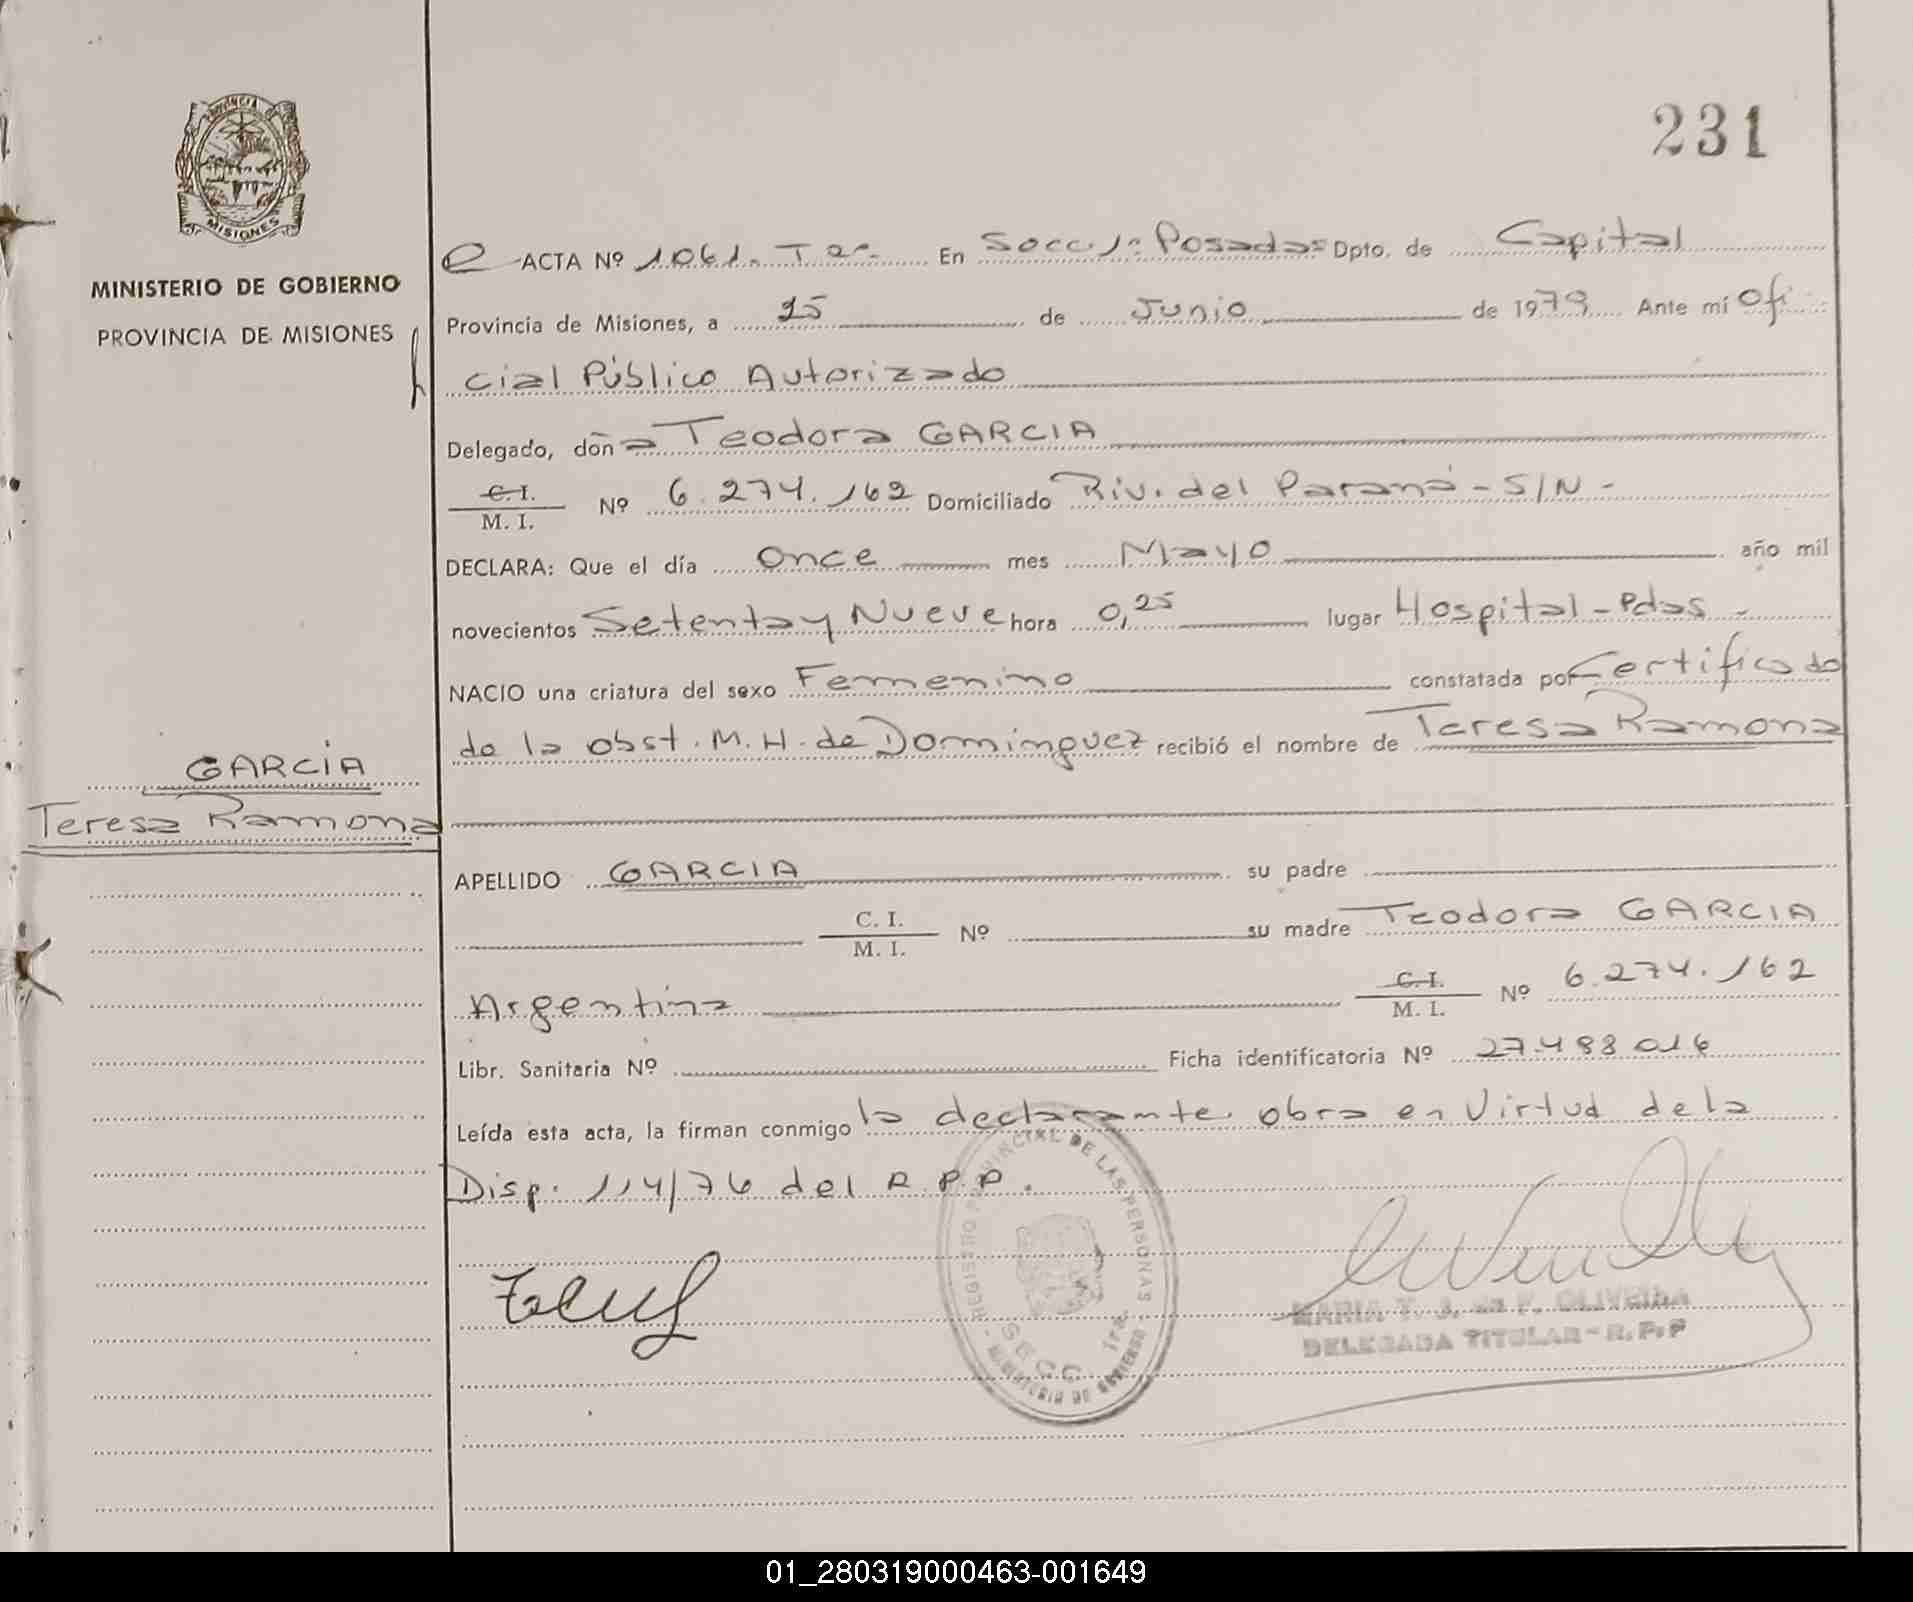 231
PROVINCIA
MISIONES
MINISTERIO DE GOBIERNO
PROVINCIA DE MISIONES
ACTA Nº 1061. T 2º En Secc. 1ª Posadas Dpto. de Capital
Provincia de Misiones, a 25 de Junio de 1979 Ante mí Ofi
cial Público Autorizado
Delegado, doña Teodora GARCIA
C. I.
M. I. Nº 6.274.162 Domiciliado Riv. del Paraná - S/N -
DECLARA: Que el día once mes Mayo año mil
novecientos Setenta y Nueve hora 0,25 lugar Hospital - Pdas -
NACIO una criatura del sexo Femenino constatada por Certificado
de la obst. M. H. de Dominguez recibió el nombre de Teresa Ramona
GARCIA
Teresa Ramona
APELLIDO GARCIA su padre
C. I.
M. I. Nº su madre Teodora GARCIA
Argentina C. I.
M. I. Nº 6.274.162
Libr. Sanitaria Nº Ficha identificatoria Nº 27.488.016
Leída esta acta, la firman conmigo la declarante. obra en Virtud de la
Disp. 114/76 del R.P.P.
REGISTRO PROVINCIAL DE LAS PERSONAS
SECC. 1ra.
MINISTERIO DE GOBIERNO
MARIA T. J. de F. OLIVEIRA
DELEGADA TITULAR - R.P.P
01_280319000463-001649